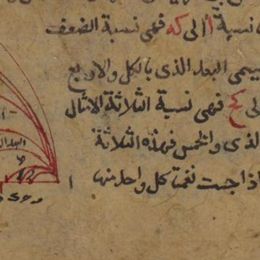 نسبة أ الى كه فهى نسبة الضعف
يسمى البعد الذى بالكل والاربع
لى كح فهى نسبة الثلاثة الامثال
لذى والخمس فهذه الثلاثة
اذا جست نغمتا كل واحد منها
البعد